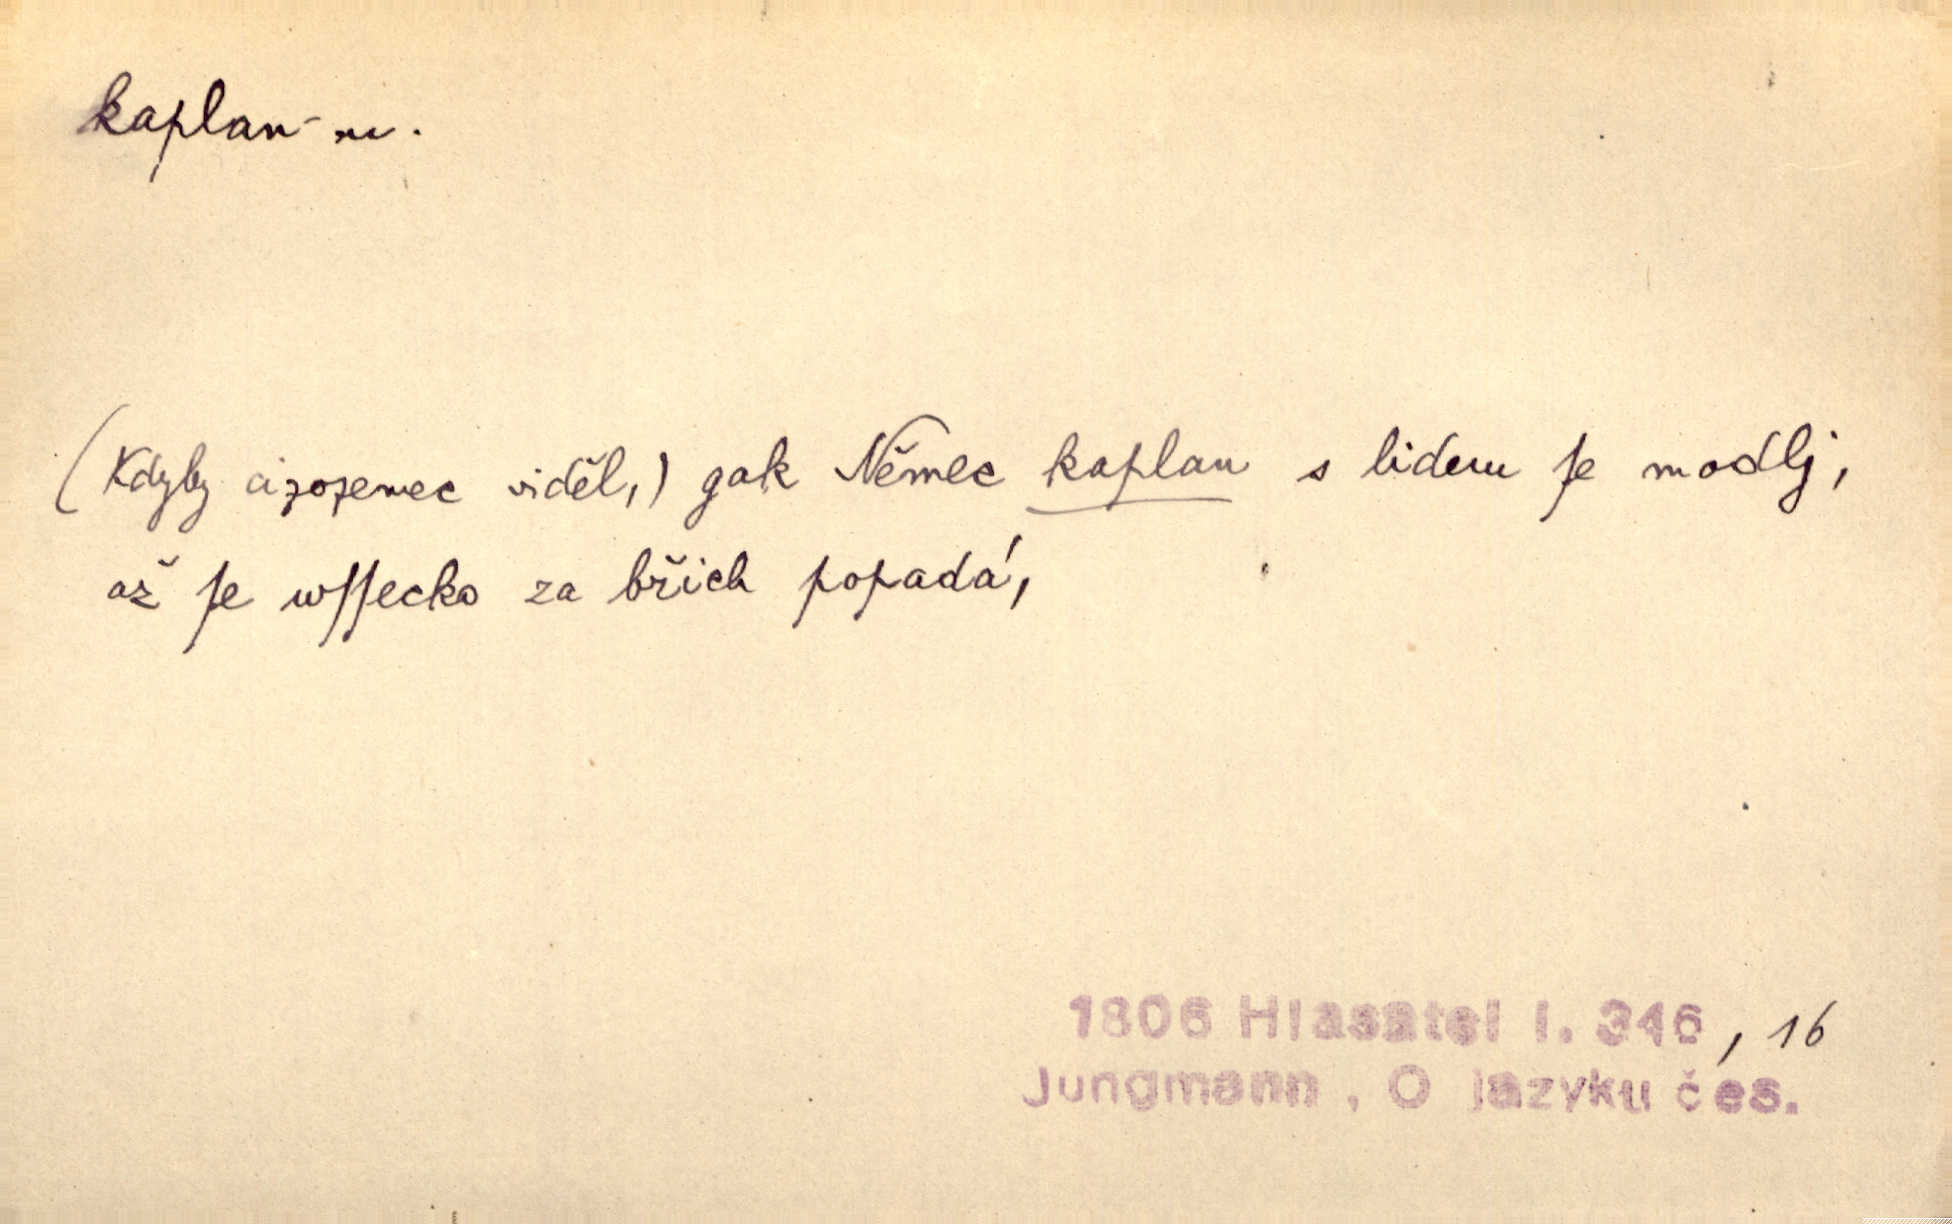 kaplan - m.
(Kdyby cizozemec viděl,) gak Němec kaplan s lidem ſe modlj,
až ſe wſſecko za břich popadá,
1806 Hlasatel I. 346, 16
Jungmann, O jazyku čes.